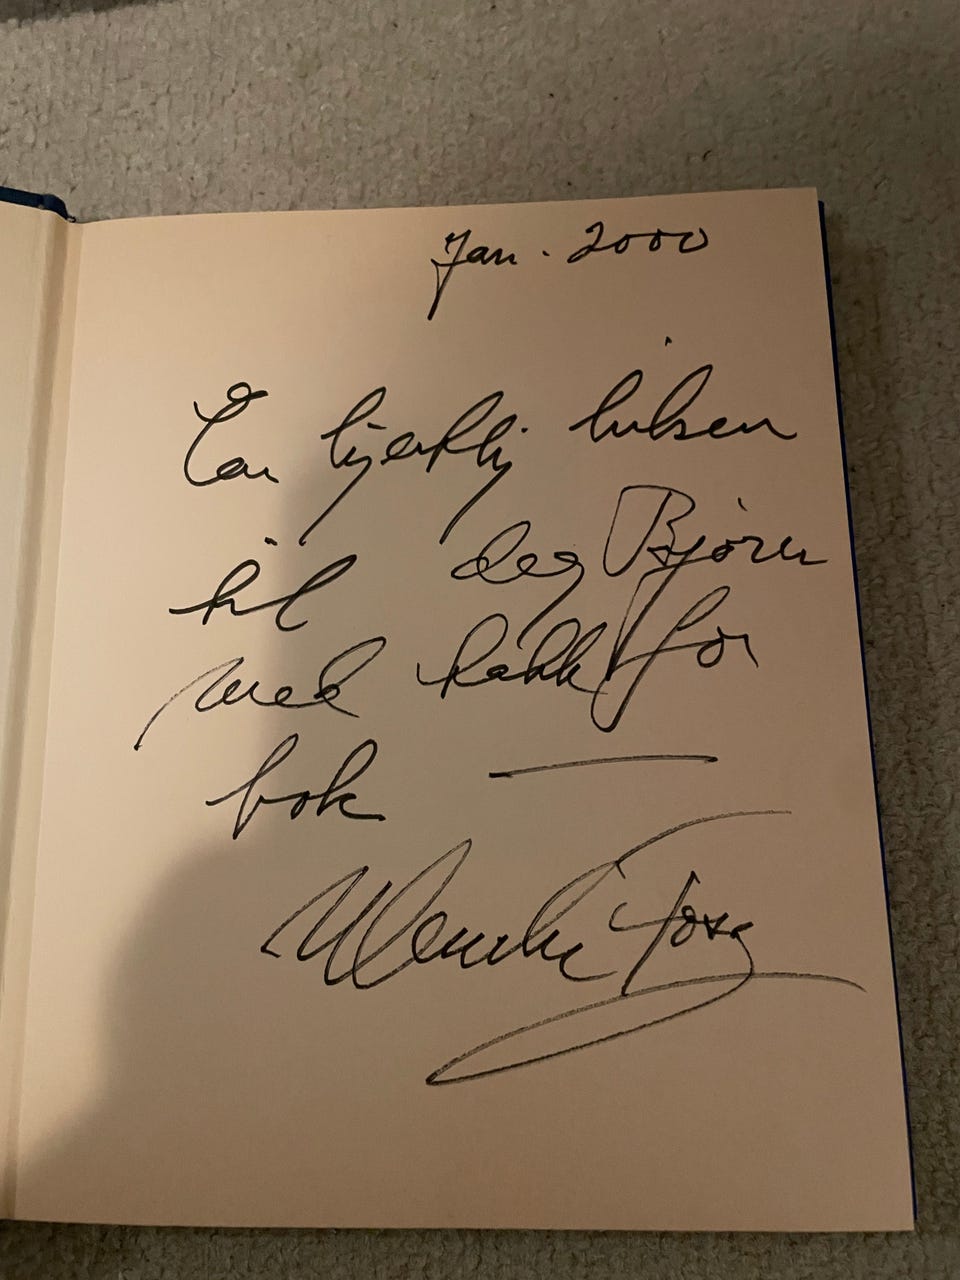 Jan. 2000
En hjertlig hilsen
til deg Bjørn
med takk for
bok —
Wenche Foss